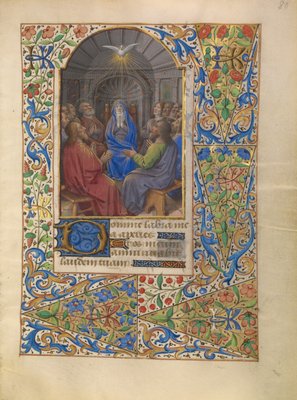 80
Domine labia me
a aperies
Et os meum
annunciabit
laudem tuam